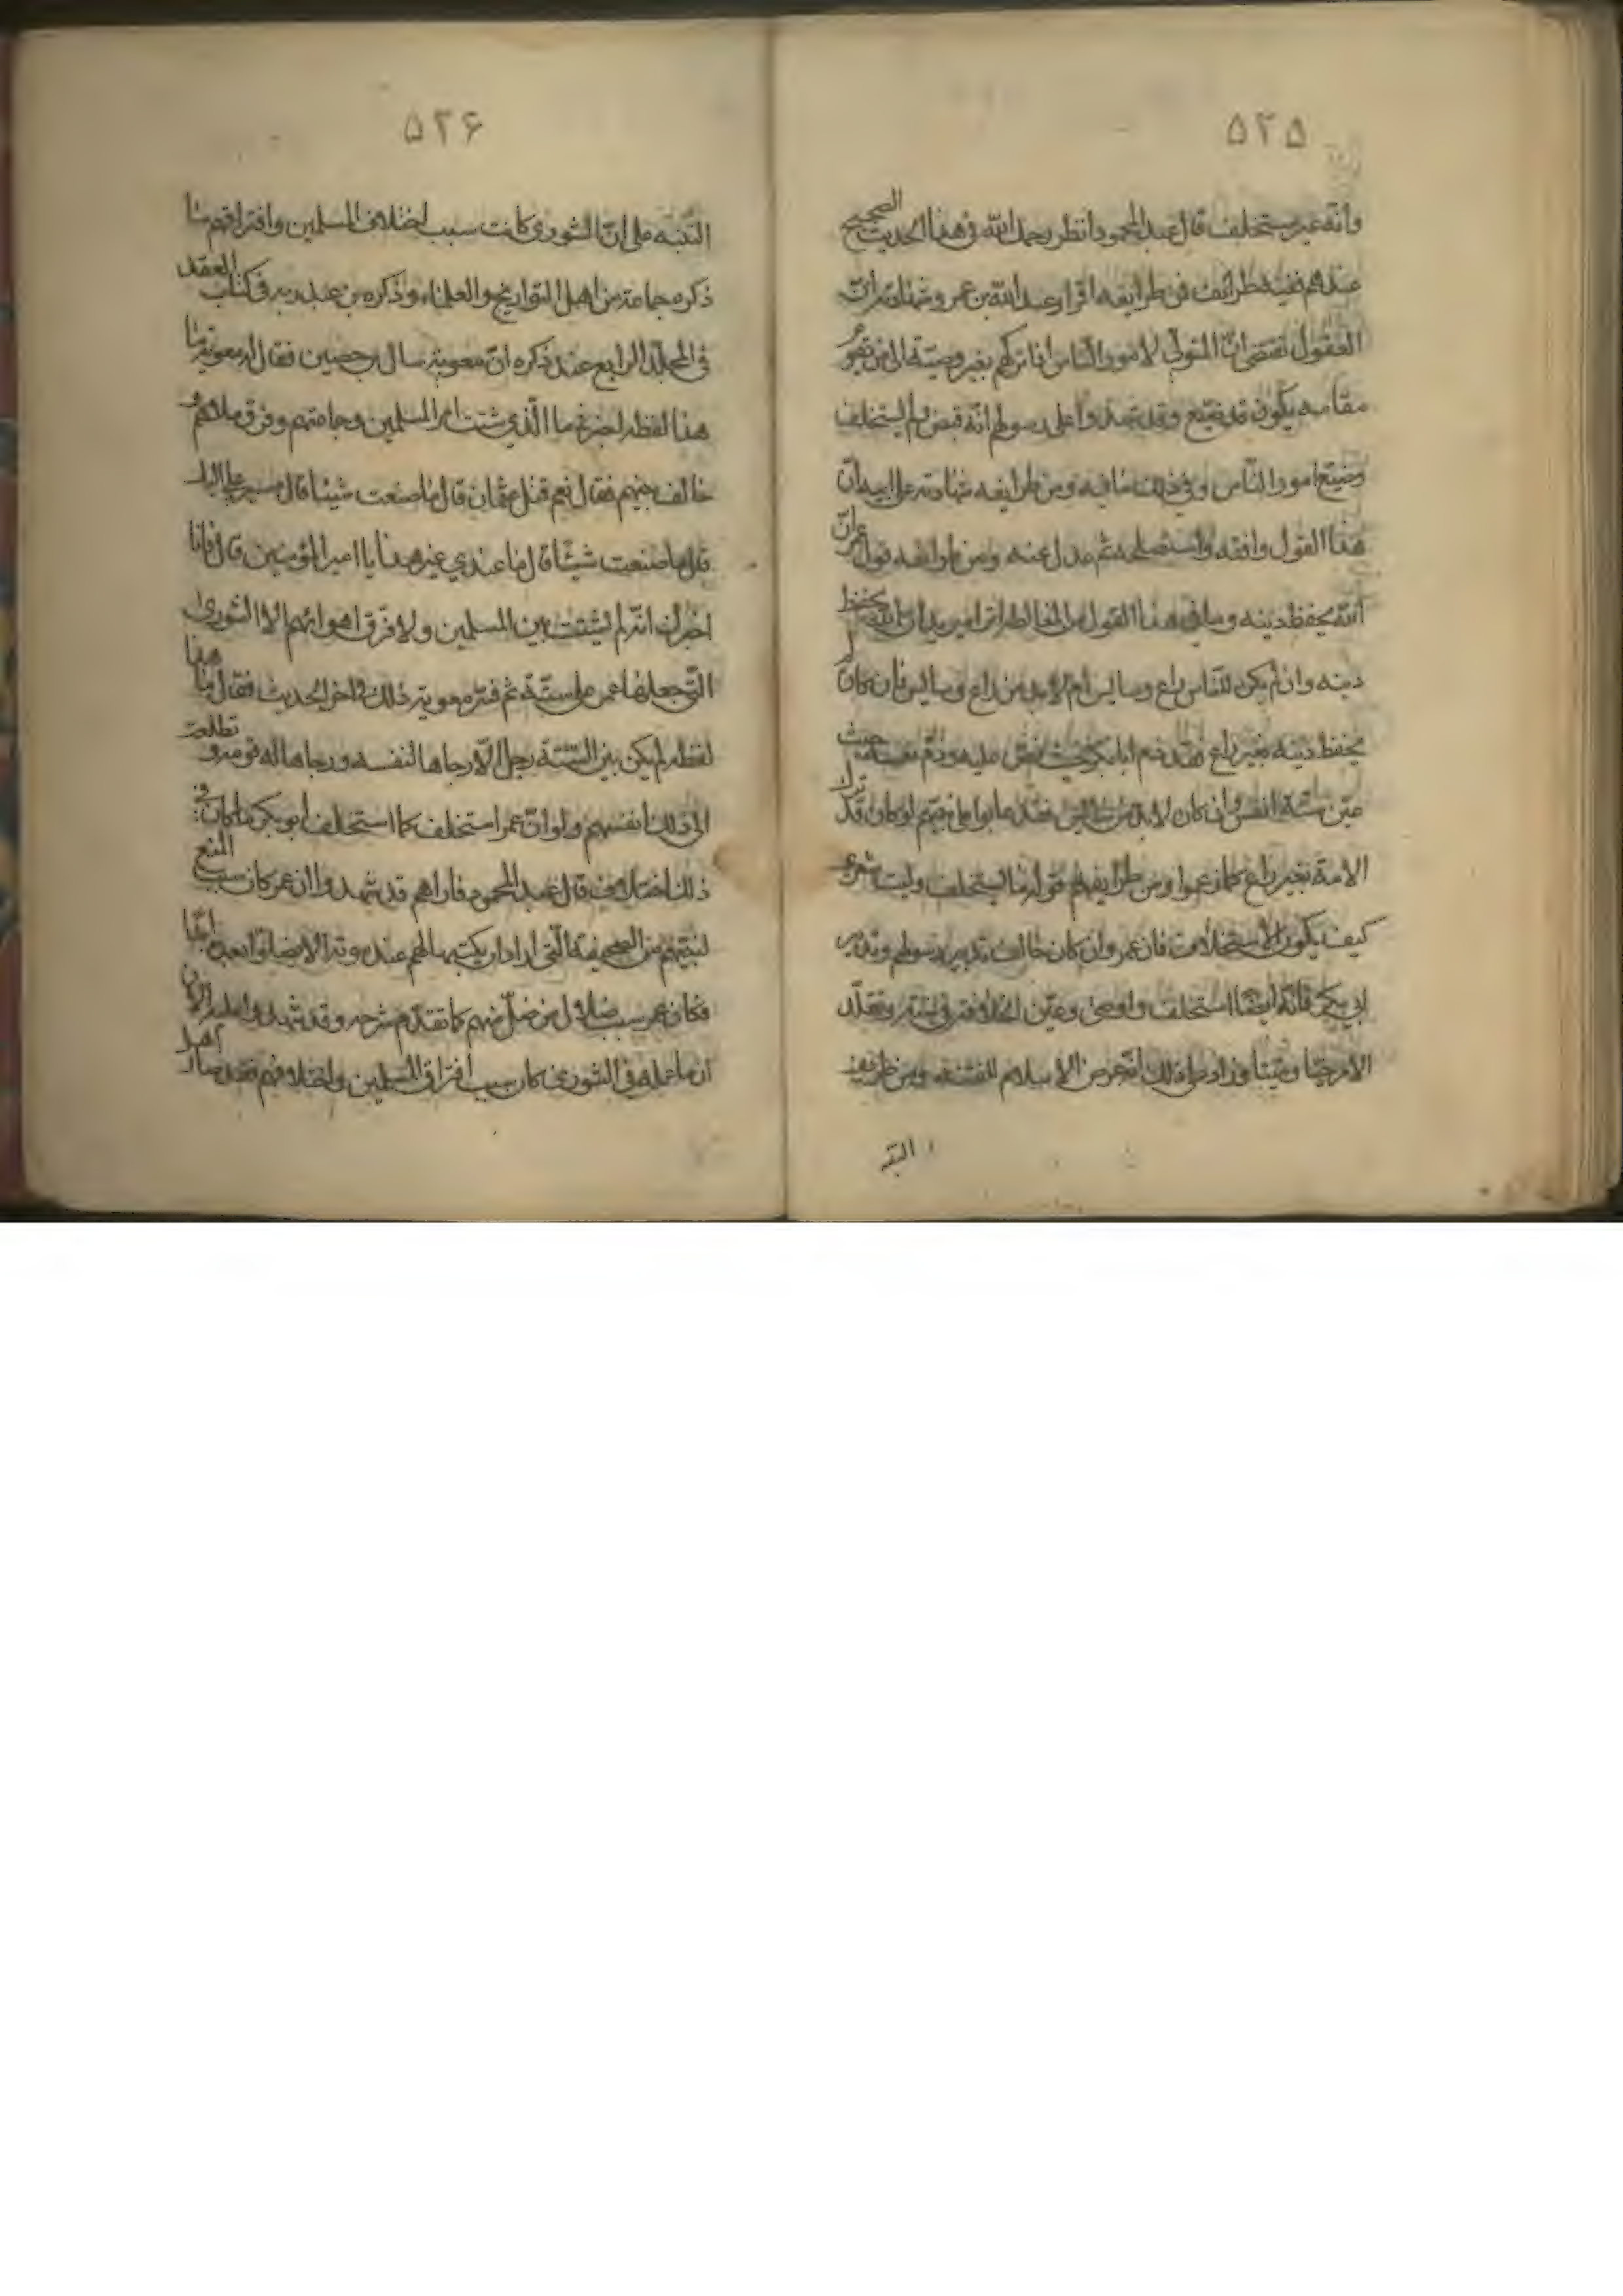 ۵۲۵
وانه غير مستخلف قال عبد المحمود انظر رحمك الله في هذا الحديث الصحيح
عندهم ففيه طرائف فمن طرايفه اقرار عبد الله بن عمر وشهادته ان
العقول تقتضي ان المتولي لامور الناس اذا تركهم بغير وصية الى من يقوم
مقامه يكون قد ضيع وقد شهدوا على رسولهم انه قبض ولم يستخلف
وضيع امور الناس وفي ذلك ما فيه ومن طرايفه شهادته على ابيه ان
هذا القول وافقه واستصلحه ثم عدل عنه ومن طرايفه قول عمر ان
الله يحفظ دينه وما في هذا القول من المغالطة اتراه يريد ان الله يحفظ
دينه وان لم يكن للناس راع وسايس ام لابد من راع وسايس فان كان
يحفظ دينه بغير راع فقد ذم ابا بكر حيث نص عليه وذم نفسه حيث
عين ستة انفس وان كان لابد من سايس فقد عابوا على نبيهم لو كان قد ترك
الامة بغير راع كما زعموا ومن طرايفهم قوله ما استخلف وليت شعري
كيف يكون الاستخلاف فان عمر وان كان خالف تدبير رسولهم وتدبير
ابي بكر فانه ايضا استخلف واوصى وعين الخلافة في ستة وتقلد
الامر حيا وميتا وزاد على ذلك انه عرض الاسلام للفتنة ومن طرايف
التنبه
۵۲۶
التنبه على ان الشورى كانت سبب اختلاف المسلمين وافتراقهم ما
ذكره جماعة من اهل التواريخ والعلماء وذكره بن عبد ربه في كتاب العقد
في المجلد الرابع عند ذكره ان معوية سال بن حصين فقال له معوية ما
هذا لفظه اخبرني ما الذي شتت امر المسلمين وجماعتهم وفرق ملاهم و
خالف بينهم فقال نعم قتل عثمان قال ما صنعت شيئا قال مسير علي اليك
قال ما صنعت شيئا قال ما عندي غير هذا يا امير المؤمنين قال فانا
اخبرك انه لم يشتت بين المسلمين ولا فرق اهوائهم الا الشورى
التي جعلها عمر على ستة ثم فسر معوية ذلك في اخر الحديث فقال ما هذا
لفظه لم يكن بين الستة رجل الا رجاها لنفسه ورجاها له قومه وتطلعت
الى ذلك انفسهم ولو ان عمر استخلف كما استخلف ابو بكر ما كان في
ذلك اختلاف قال عبد المحمود فاراهم قد شهدوا ان عمر كان سبب المنع
لنبيهم من الصحيفة التي اراد ان يكتبها لهم عند موته الا يضلوا بعده ابدا
فكان عمر سبب ضلال من ضل منهم كما تقدم شرحه وقد شهدوا عليه الان
ان ما عمله في الشورى كان سبب افتراق المسلمين واختلافهم فقد صار اصل